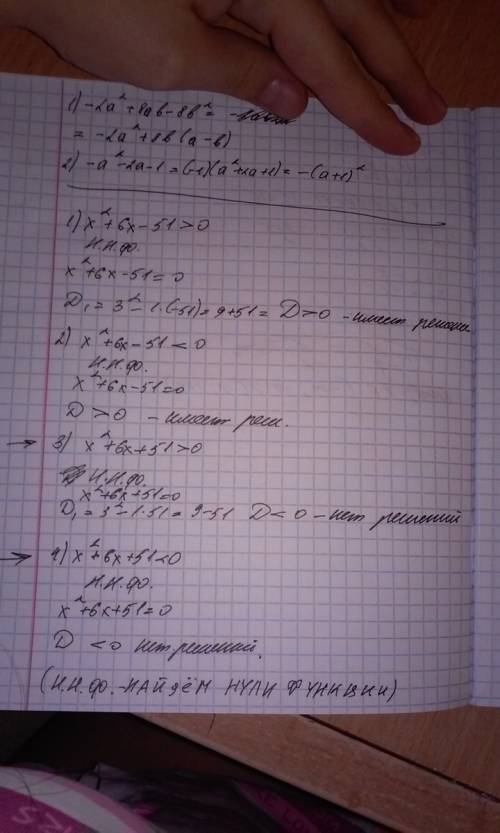 1) -2a² + 8ab - 8b² =
= -2a² + 8b(a-b)
2) -a² - 2a - 1 = (-1)(a² + 2a + 1) = -(a+1)²
1) x² + 6x - 51 > 0
Н.Н.ф.
x² + 6x - 51 = 0
D₁ = 3² - 1·(-51) = 9 + 51 = D > 0 - имеет решения
2) x² + 6x - 51 < 0
Н.Н.ф.
x² + 6x - 51 = 0
D > 0 - имеет реш.
→ 3) x² + 6x + 51 > 0
Н.Н.ф.
x² + 6x + 51 = 0
D₁ = 3² - 1·51 = 9 - 51 D < 0 - нет решений
→ 4) x² + 6x + 51 < 0
Н.Н.ф.
x² + 6x + 51 = 0
D < 0 нет решений.
(Н.Н.ф. - НАЙДЁМ НУЛИ ФУНКЦИИ)